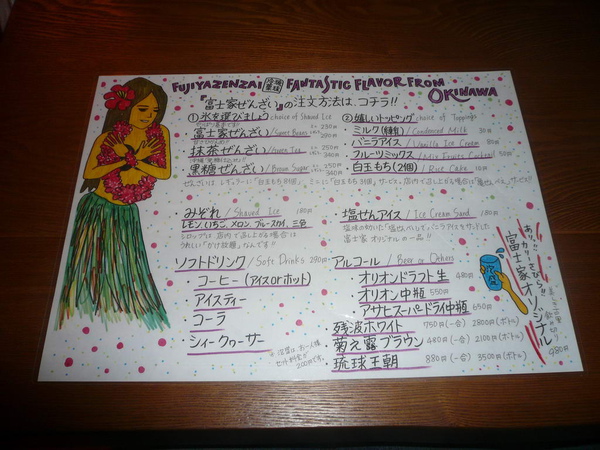 FUJIYAZENZAI 沖縄風味 FANTASTIC FLAVOR FROM OKINAWA
『富士家ぜんざい』の注文方法は、コチラ!!
①氷を選びましょう choice of Shaved Ice
富士家ぜんざい/Sweet Beans 280円
抹茶ぜんざい/Green Tea 250円 340円
黒糖ぜんざい/Brown Sugar 250円 340円
②嬉しいトッピング choice of Toppings
ミルク(練乳)/Condensed Milk 30円
バニラアイス/Vanilla Ice Cream 80円
フルーツミックス/Mix Fruits Cocktail 50円
白玉もち(2個)/Rice Cake 10円
みぞれ/Shaved Ice 180円
レモン、いちご、メロン、ブルースカイ、三色
シロップは、店内で召し上がる場合は
うれしい「かけ放題」なんです!!
塩ぜんアイス/Ice Cream Sand 180円
富士家オリジナルの一品!!
ソフトドリンク/Soft Drinks 290円
・コーヒー(アイス or ホット)
・アイスティー
・コーラ
・シィークヮーサー
アルコール/Beer or Others
・オリオンドラフト生 480円
・オリオン中瓶 550円
・アサヒスーパードライ中瓶 650円
残波ホワイト 750円(一合) 2800円(ボトル)
菊之露ブラウン 480円(一合) 2100円(ボトル)
琉球王朝 880円(一合) 3500円(ボトル)
富士家オリジナル
980円